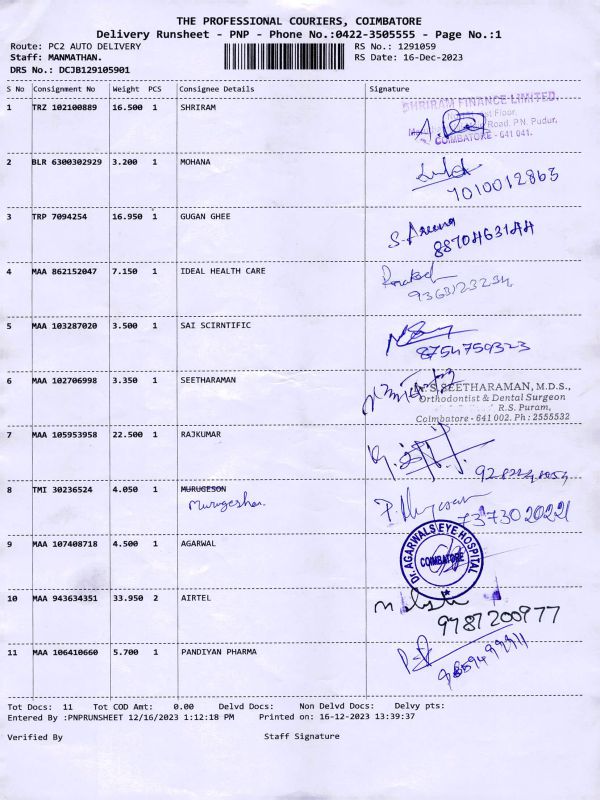 THE PROFESSIONAL COURIERS, COIMBATORE
Delivery Runsheet - PNP - Phone No.:0422-3505555 - Page No.:1
Route: PC2 AUTO DELIVERY RS No.: 1291059
Staff: MANMATHAN. RS Date: 16-Dec-2023
DRS No.: DCJB129105901
S No Consignment No Weight PCS Consignee Details Signature
1 TRZ 102100889 16.500 1 SHRIRAM
SHRIRAM FINANCE LIMITED.
Floor,
Road, P.N. Pudur,
COIMBATORE - 641 041.
2 BLR 6300302929 3.200 1 MOHANA
7010012863
3 TRP 7094254 16.950 1 GUGAN GHEE
8870463144
4 MAA 862152047 7.150 1 IDEAL HEALTH CARE
9363123234
5 MAA 103287020 3.500 1 SAI SCIRNTIFIC
8754759323
6 MAA 102706998 3.350 1 SEETHARAMAN
SEETHARAMAN, M.D.S.,
Orthodontist & Dental Surgeon
R.S. Puram,
Coimbatore - 641 002. Ph : 2555532
7 MAA 105953958 22.500 1 RAJKUMAR
8 TMI 30236524 4.050 1 MURUGESON
Murugeshan.
7373020221
9 MAA 107408718 4.500 1 AGARWAL
Dr. AGARWALS EYE HOSPITAL
COIMBATORE
10 MAA 943634351 33.950 2 AIRTEL
9787200977
11 MAA 106410660 5.700 1 PANDIYAN PHARMA
Tot Docs: 11 Tot COD Amt: 0.00 Delvd Docs: Non Delvd Docs: Delvy pts:
Entered By :PNPRUNSHEET 12/16/2023 1:12:18 PM Printed on: 16-12-2023 13:39:37
Verified By Staff Signature